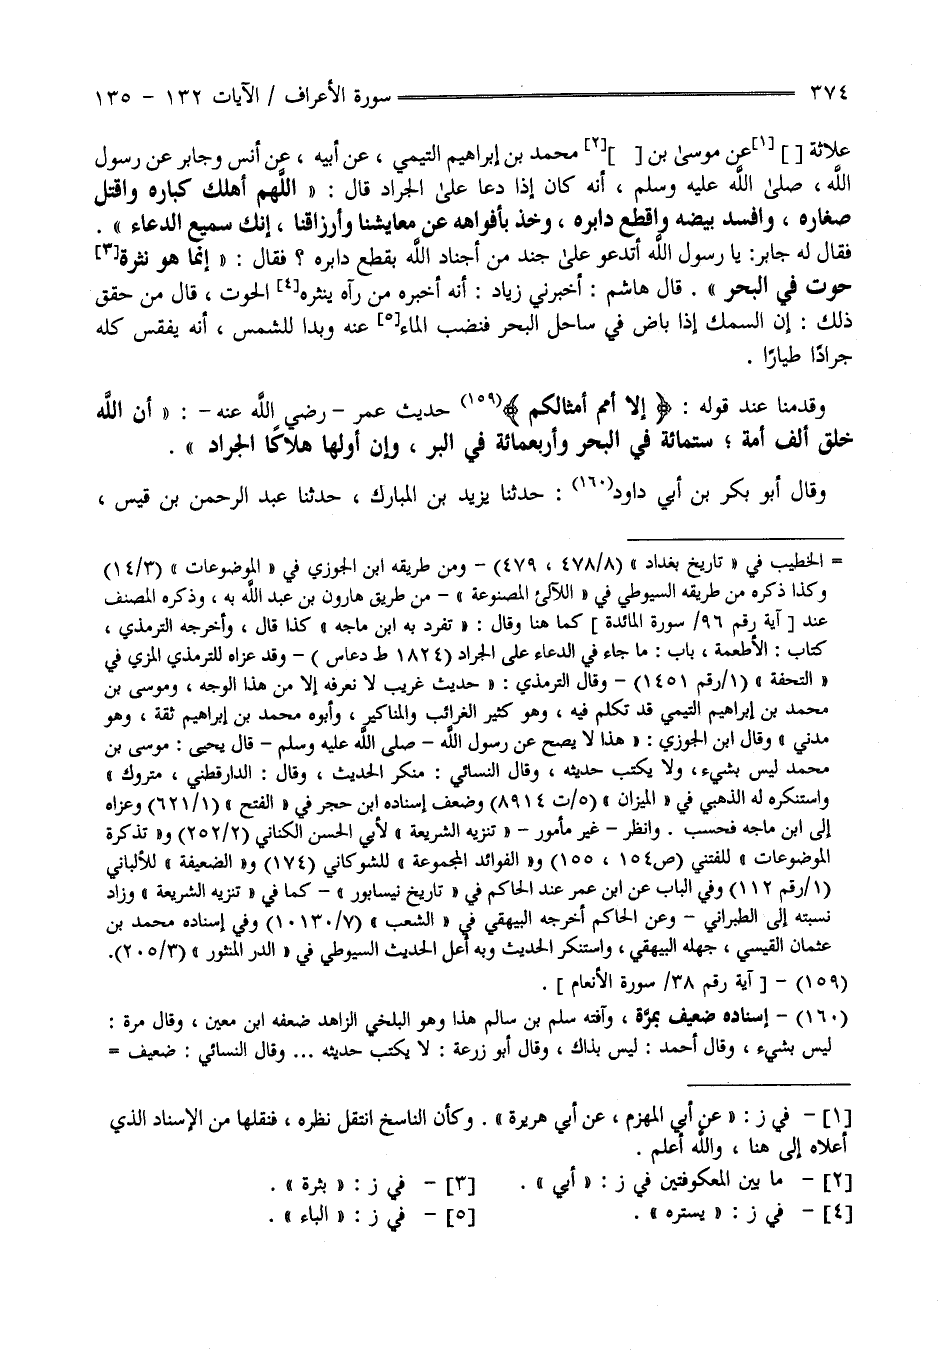 ٣٧٤ سورة الأعراف / الآيات ١٣٢ - ١٣٥
علاثة [ ] [١] عن موسىٰ بن [ ] [٢] محمد بن إبراهيم التيمي ، عن أبيه ، عن أنس وجابر عن رسول
الله ، صلىٰ الله عليه وسلم ، أنه كان إذا دعا علىٰ الجراد قال : « اللَّهم أهلك كباره واقتل
صغاره ، وافسد بيضه واقطع دابره ، وخذ بأفواهه عن معايشنا وأرزاقنا ، إنك سميع الدعاء » .
فقال له جابر: يا رسول الله أتدعو علىٰ جند من أجناد الله بقطع دابره ؟ فقال : « إنما هو نثرة [٣]
حوت في البحر » . قال هاشم : أخبرني زياد : أنه أخبره من رآه ينثره [٤] الحوت ، قال من حقق
ذلك : إن السمك إذا باض في ساحل البحر فنضب الماء [٥] عنه وبدا للشمس ، أنه يفقس كله
جرادًا طيارًا .
وقدمنا عند قوله : ﴿ إلا أمم أمثالكم ﴾ (١٥٩) حديث عمر - رضي الله عنه - : « أن الله
خلق ألف أمة ؛ ستمائة في البحر وأربعمائة في البر ، وإن أولها هلاكًا الجراد » .
وقال أبو بكر بن أبي داود (١٦٠) : حدثنا يزيد بن المبارك ، حدثنا عبد الرحمن بن قيس ،
= الخطيب في « تاريخ بغداد » (٤٧٨/٨ ، ٤٧٩) - ومن طريقه ابن الجوزي في « الموضوعات » (١٤/٣)
وكذا ذكره من طريقه السيوطي في « اللآلئ المصنوعة » - من طريق هارون بن عبد الله به ، وذكره المصنف
عند [ آية رقم ٩٦/ سورة المائدة ] كما هنا وقال : « تفرد به ابن ماجه » كذا قال ، وأخرجه الترمذي ،
كتاب : الأطعمة ، باب : ما جاء في الدعاء على الجراد (١٨٢٤ ط دعاس ) - وقد عزاه للترمذي المزي في
« التحفة » (١/رقم ١٤٥١) - وقال الترمذي : « حديث غريب لا نعرفه إلا من هذا الوجه ، وموسى بن
محمد بن إبراهيم التيمي قد تكلم فيه ، وهو كثير الغرائب والمناكير ، وأبوه محمد بن إبراهيم ثقة ، وهو
مدني » وقال ابن الجوزي : « هذا لا يصح عن رسول الله - صلى الله عليه وسلم - قال يحيى : موسى بن
محمد ليس بشيء، ولا يكتب حديثه ، وقال النسائي : منكر الحديث ، وقال : الدارقطني ، متروك »
واستنكره له الذهبي في « الميزان » (٥/ت ٨٩١٤) وضعف إسناده ابن حجر في « الفتح » (٦٢١/١) وعزاه
إلى ابن ماجه فحسب . وانظر - غير مأمور - « تنزيه الشريعة » لأبي الحسن الكناني (٢٥٢/٢) و« تذكرة
الموضوعات » للفتني (ص١٥٤ ، ١٥٥) و« الفوائد المجموعة » للشوكاني (١٧٤) و« الضعيفة » للألباني
(١/رقم ١١٢) وفي الباب عن ابن عمر عند الحاكم في « تاريخ نيسابور » - كما في « تنزيه الشريعة » وزاد
نسبته إلى الطبراني - وعن الحاكم أخرجه البيهقي في « الشعب » (١٠١٣٠/٧) وفي إسناده محمد بن
عثمان القيسي ، جهله البيهقي ، واستنكر الحديث وبه أعل الحديث السيوطي في « الدر المنثور » (٢٠٥/٣).
(١٥٩) - [ آية رقم ٣٨/ سورة الأنعام ] .
(١٦٠) - إسناده ضعيف بمرّة ، وآفته سلم بن سالم هذا وهو البلخي الزاهد ضعفه ابن معين ، وقال مرة :
ليس بشيء ، وقال أحمد : ليس بذاك ، وقال أبو زرعة : لا يكتب حديثه ... وقال النسائي : ضعيف =
[١] - في ز : « عن أبي المهزم ، عن أبي هريرة » . وكأن الناسخ انتقل نظره ، فنقلها من الإسناد الذي
أعلاه إلى هنا ، والله أعلم .
[٢] - ما بين المعكوفتين في ز : « أبي » . [٣] - في ز : « بثرة » .
[٤] - في ز : « يستره » . [٥] - في ز : « الباء » .